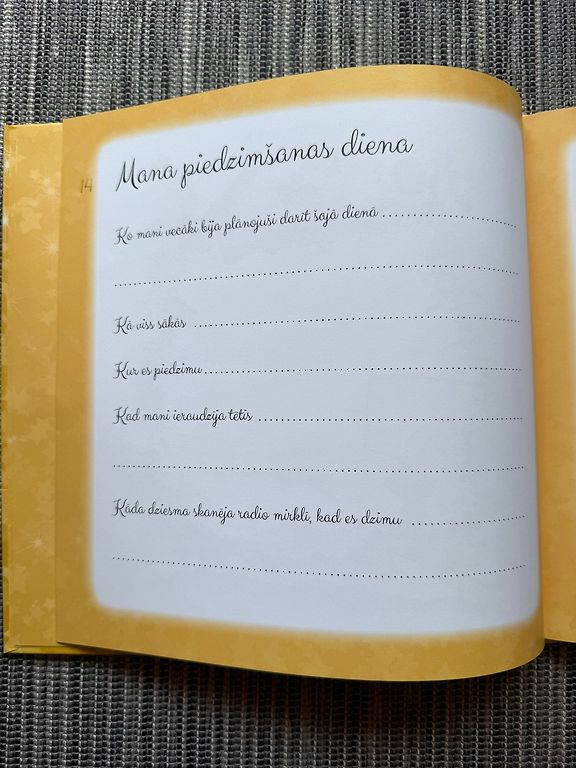 Mana piedzimšanas diena
14
Ko mani vecāki bija plānojuši darīt šajā dienā
Kā viss sākās
Kur es piedzimu
Kad mani ieraudzīja tētis
Kāda dziesma skanēja radio mirklī, kad es dzimu